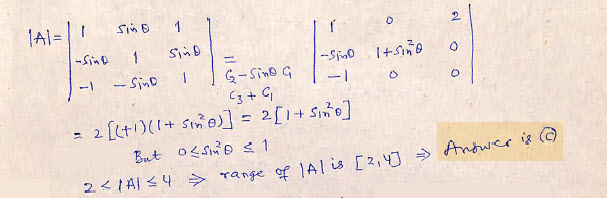 |A| = | 1 sinθ 1 | | 1 0 2 |
| -sinθ 1 sinθ | = | -sinθ 1+sin²θ 0 |
| -1 -sinθ 1 | C₂-sinθ C₁ | -1 0 0 |
C₃ + C₁
= 2[(+1)(1+ sin²θ)] = 2[1+ sin²θ]
But 0≤sin²θ ≤ 1
2 < |A| ≤ 4 ⇒ range of |A| is [2,4] ⇒ Answer is (C)